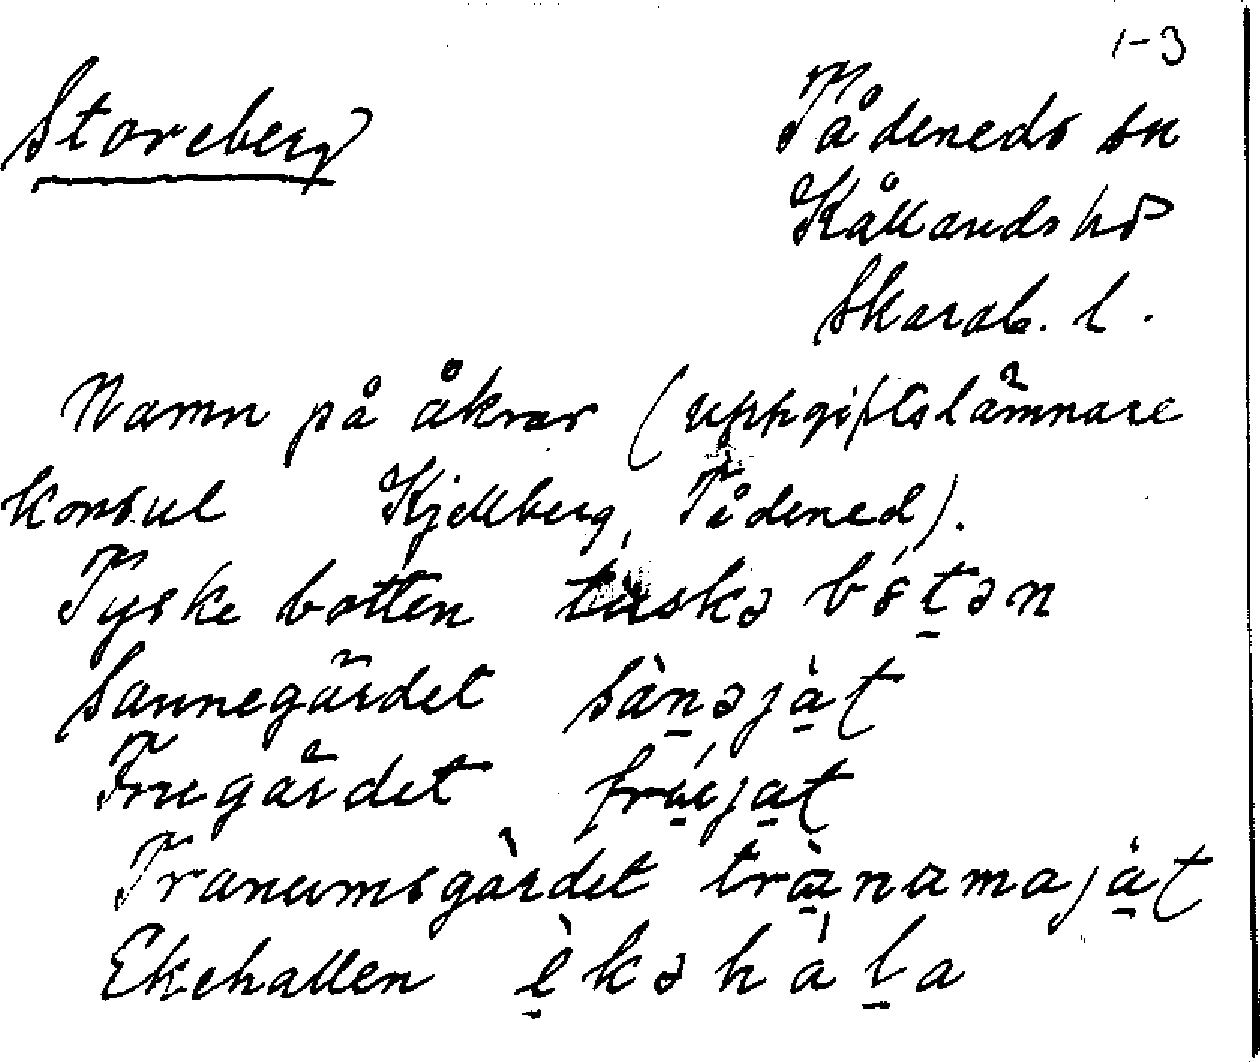 1-3
Storeberg
Tådeneds sn
Kållands hd
Skarab. l.
Namn på åkrar (uppgiftslämnare
konsul Kjellberg, Tådened).
Tyske botten tùskə bótən
Sannegärdet sànəjàt
Fruegärdet
Tranumsgärdet trànamajàt
Ekehallen èkəhàla